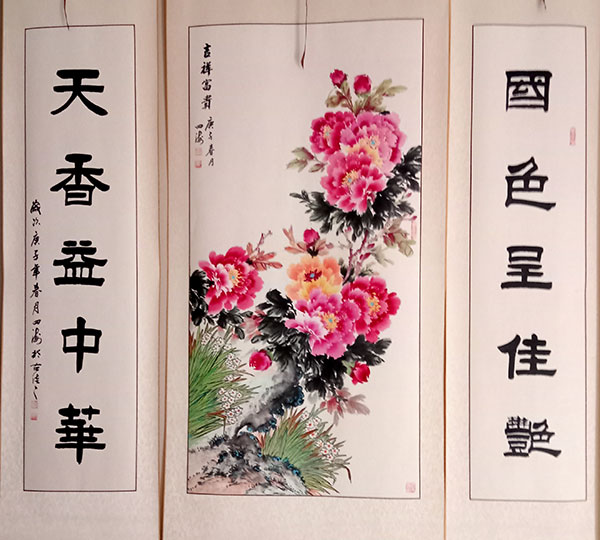 國色呈佳艷
吉祥富貴
庚子春月
四海
天香益中華
歲次庚子年春月四海於古